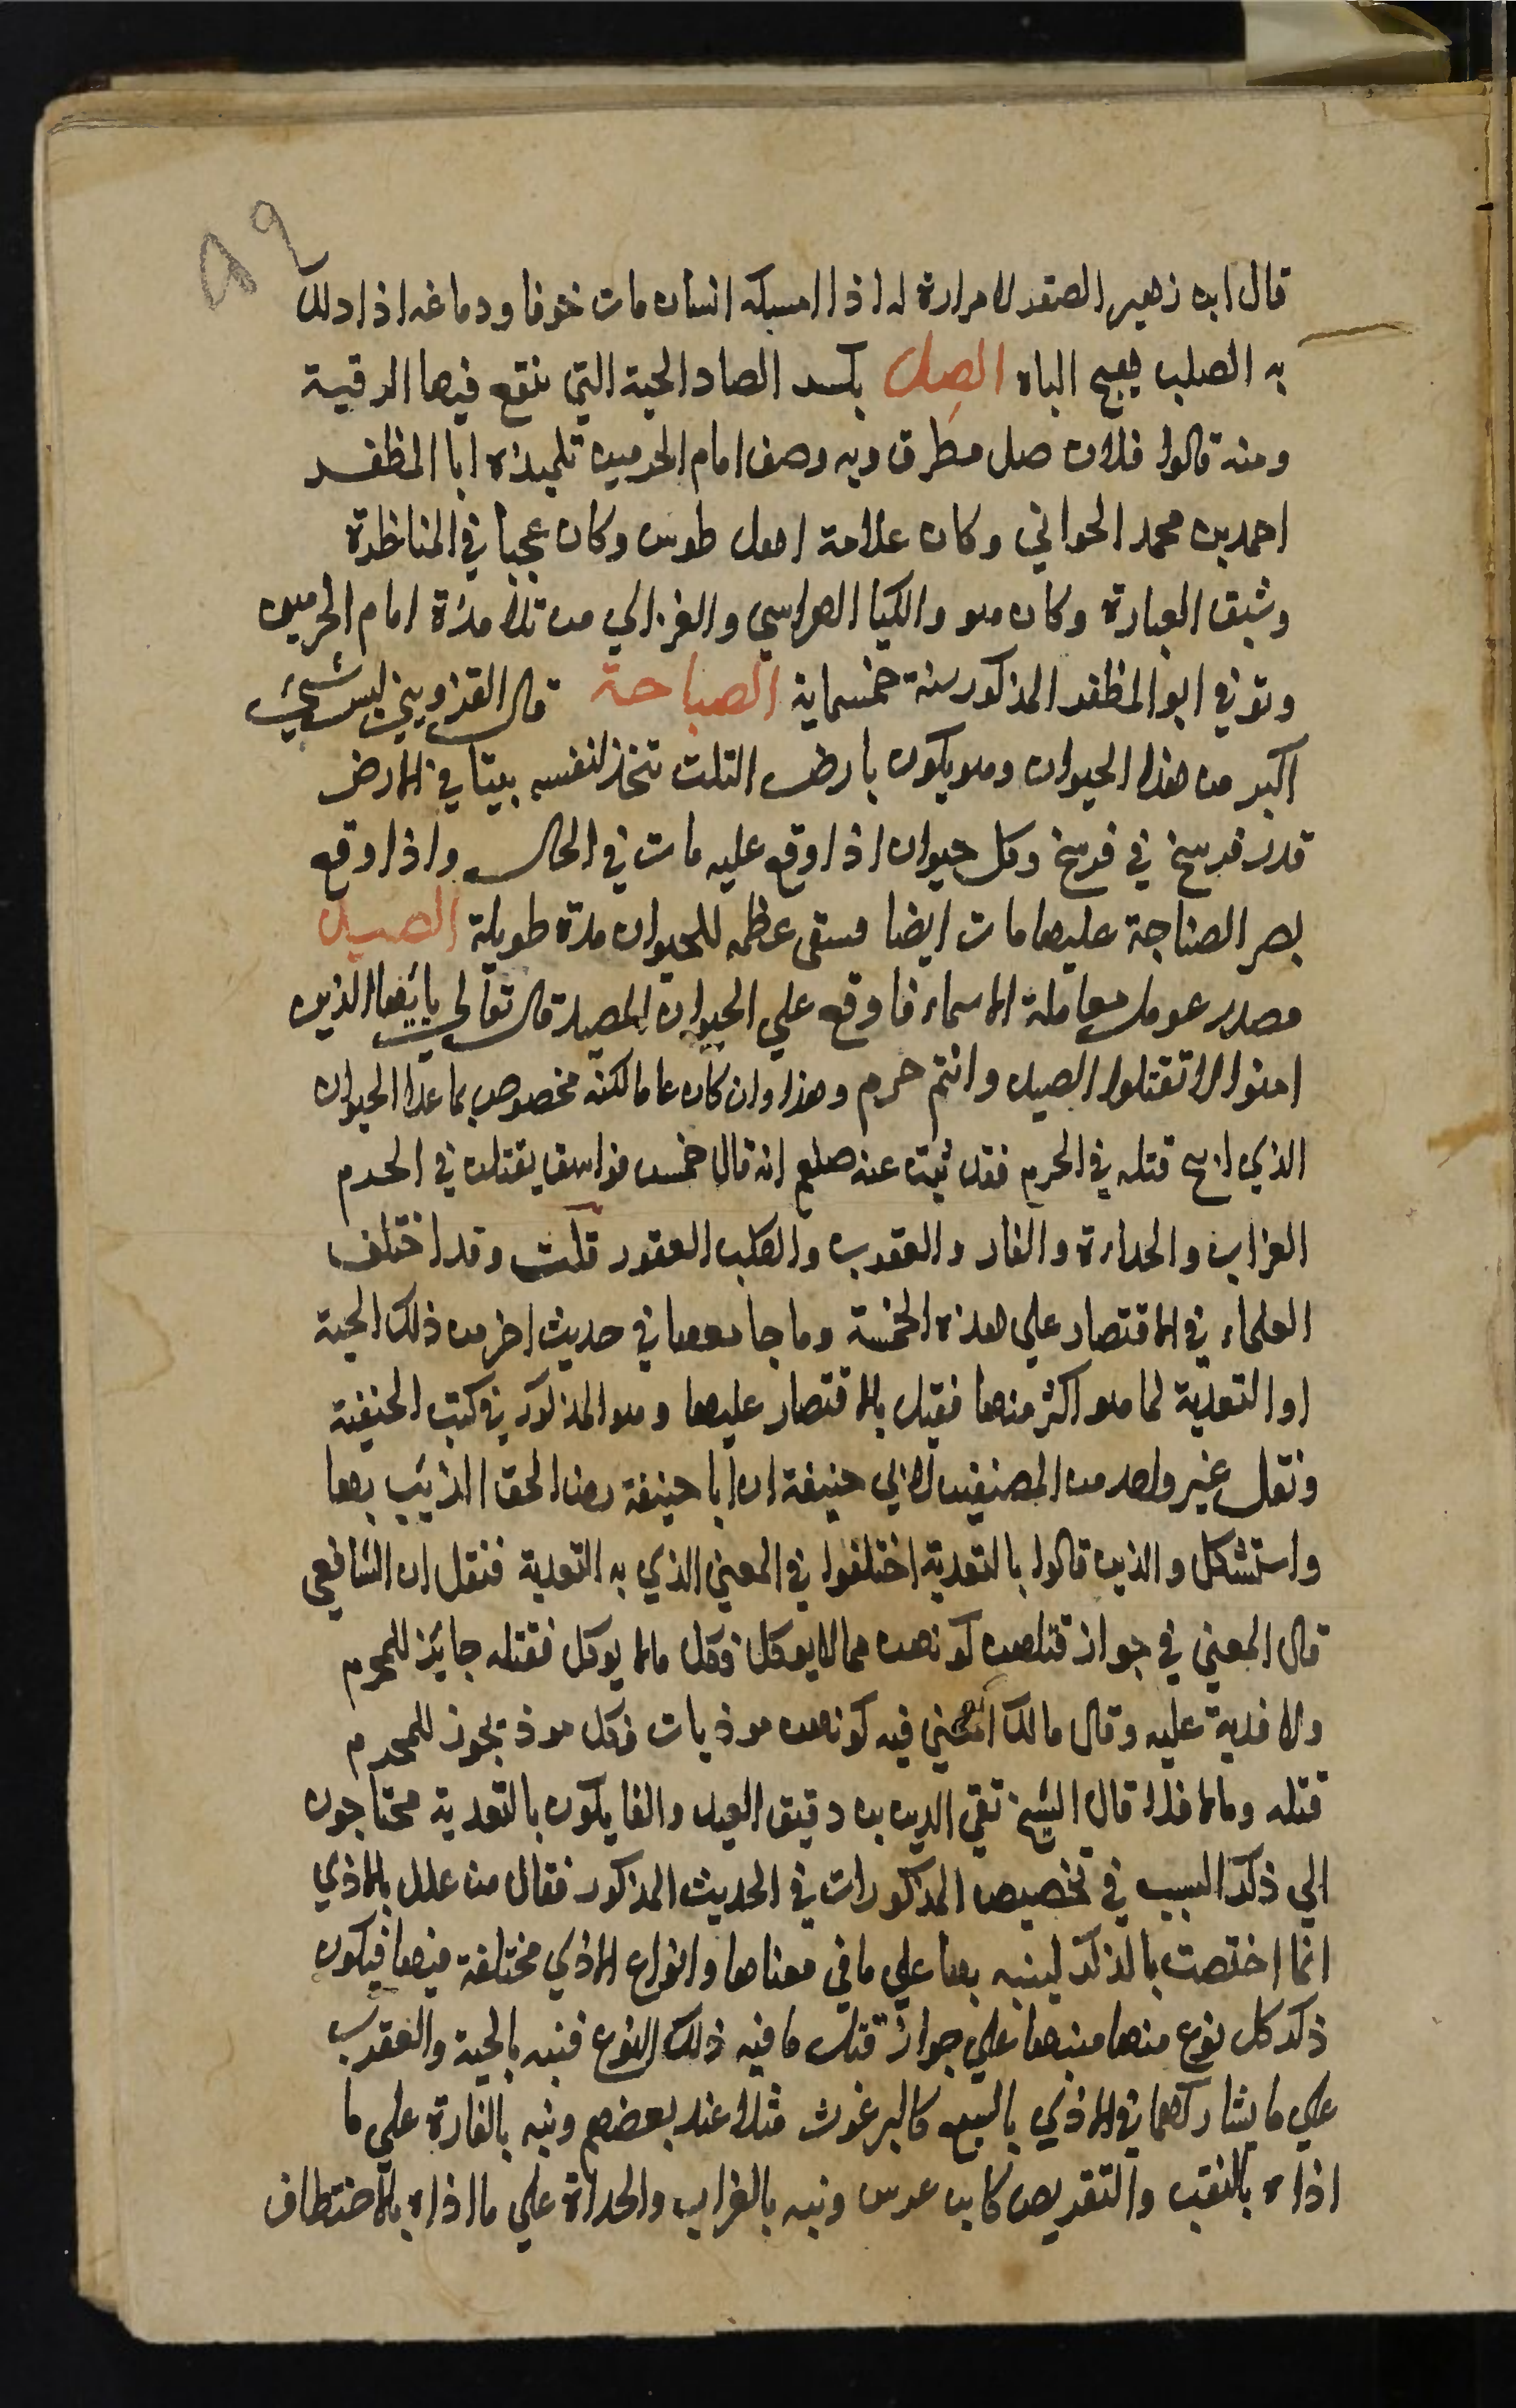 ٨٩
قال ابن زهير الصقر لا مرارة له اذا امسكه انسان مات خوفا ودماغه اذا دلك
به الصلب يهيج الباه الصِل بكسر الصاد الحية التي تنقع فيها الرقية
ومنه قالوا فلان صل مطرق وبه وصف امام الحرمين تلميذه ابا المظفر
احمد بن محمد الخوافي وكان علامة اهل طوس وكان عجبا في المناظرة
وشبق العبارة وكان هو والكيا الهراسي والغزالي من تلامذة امام الحرمين
وتوفي ابو المظفر المذكور سنة خمسماية الصباحة قال القزويني ليس شيئ
اكبر من هذا الحيوان وهو يكون بارض التلت تتخذ لنفسه بيتا في الارض
قدر فرسخ في فرسخ وكل حيوان اذا وقع عليه مات في الحال واذا وقع
بصر الصناجة عليها مات ايضا فسقى عظمه للحيوان مدة طويلة الصيد
مصدر عومل معاملة الاسماء فاوقع علي الحيوان المصيد قال تعالي يايها الذين
امنوا لا تقتلوا الصيد وانتم حرم وهذا وان كان عاما لكنه مخصوص بما عدا الحيوان
الذي ابيح قتله في الحرم فقد ثبت عنه صلعم انه قال خمس فواسق يقتلن في الحرم
الغراب والحداءة والفار والعقرب والكلب العقور قلت وقد اختلف
العلماء في الاقتصار علي هذه الخمسة وما جا معها في حديث اخر من ذلك الحية
او التعدية لما هو اكثر منها فقيل بالاقتصار عليها وهو المذكور في كتب الحنفية
ونقل غير واحد من المصنفين لابي حنيفة ان ابا حنيفة رضا الحق الذيب بها
واستشكل والذين قالوا بالتعدية اختلفوا في المعني الذي به التعدية فنقل ان الشافعي
قال المعني في جواز قتلهن كونهن مما لا يوكل فكل مالا يوكل فقتله جايز للمحرم
ولا فدية عليه وقال مالك المعني فيه كونهن موذيات فكل موذ يجوز للمحرم
قتله ومالا فلا قال الشيخ تقي الدين بن دقيق العيد والقايلون بالتعدية محتاجون
الي ذكر السبب في تخصيص المذكورات في الحديث المذكور فقال من علل بالاذي
انما اختصت بالذكر لينبه بها علي ما في معناها وانواع الاذي مختلفة فيها فيكون
ذكر كل نوع منها منبها علي جواز قتل ما فيه ذلك النوع فنبه بالحية والعقرب
علي ما يشاركهما في الاذي بالسع كالبرغوث مثلا عند بعضهم ونبه بالفارة علي ما
اذاه بالنقب والتقريض كابن عرس ونبه بالغراب والحداة علي ما اذاه بالاختطاف